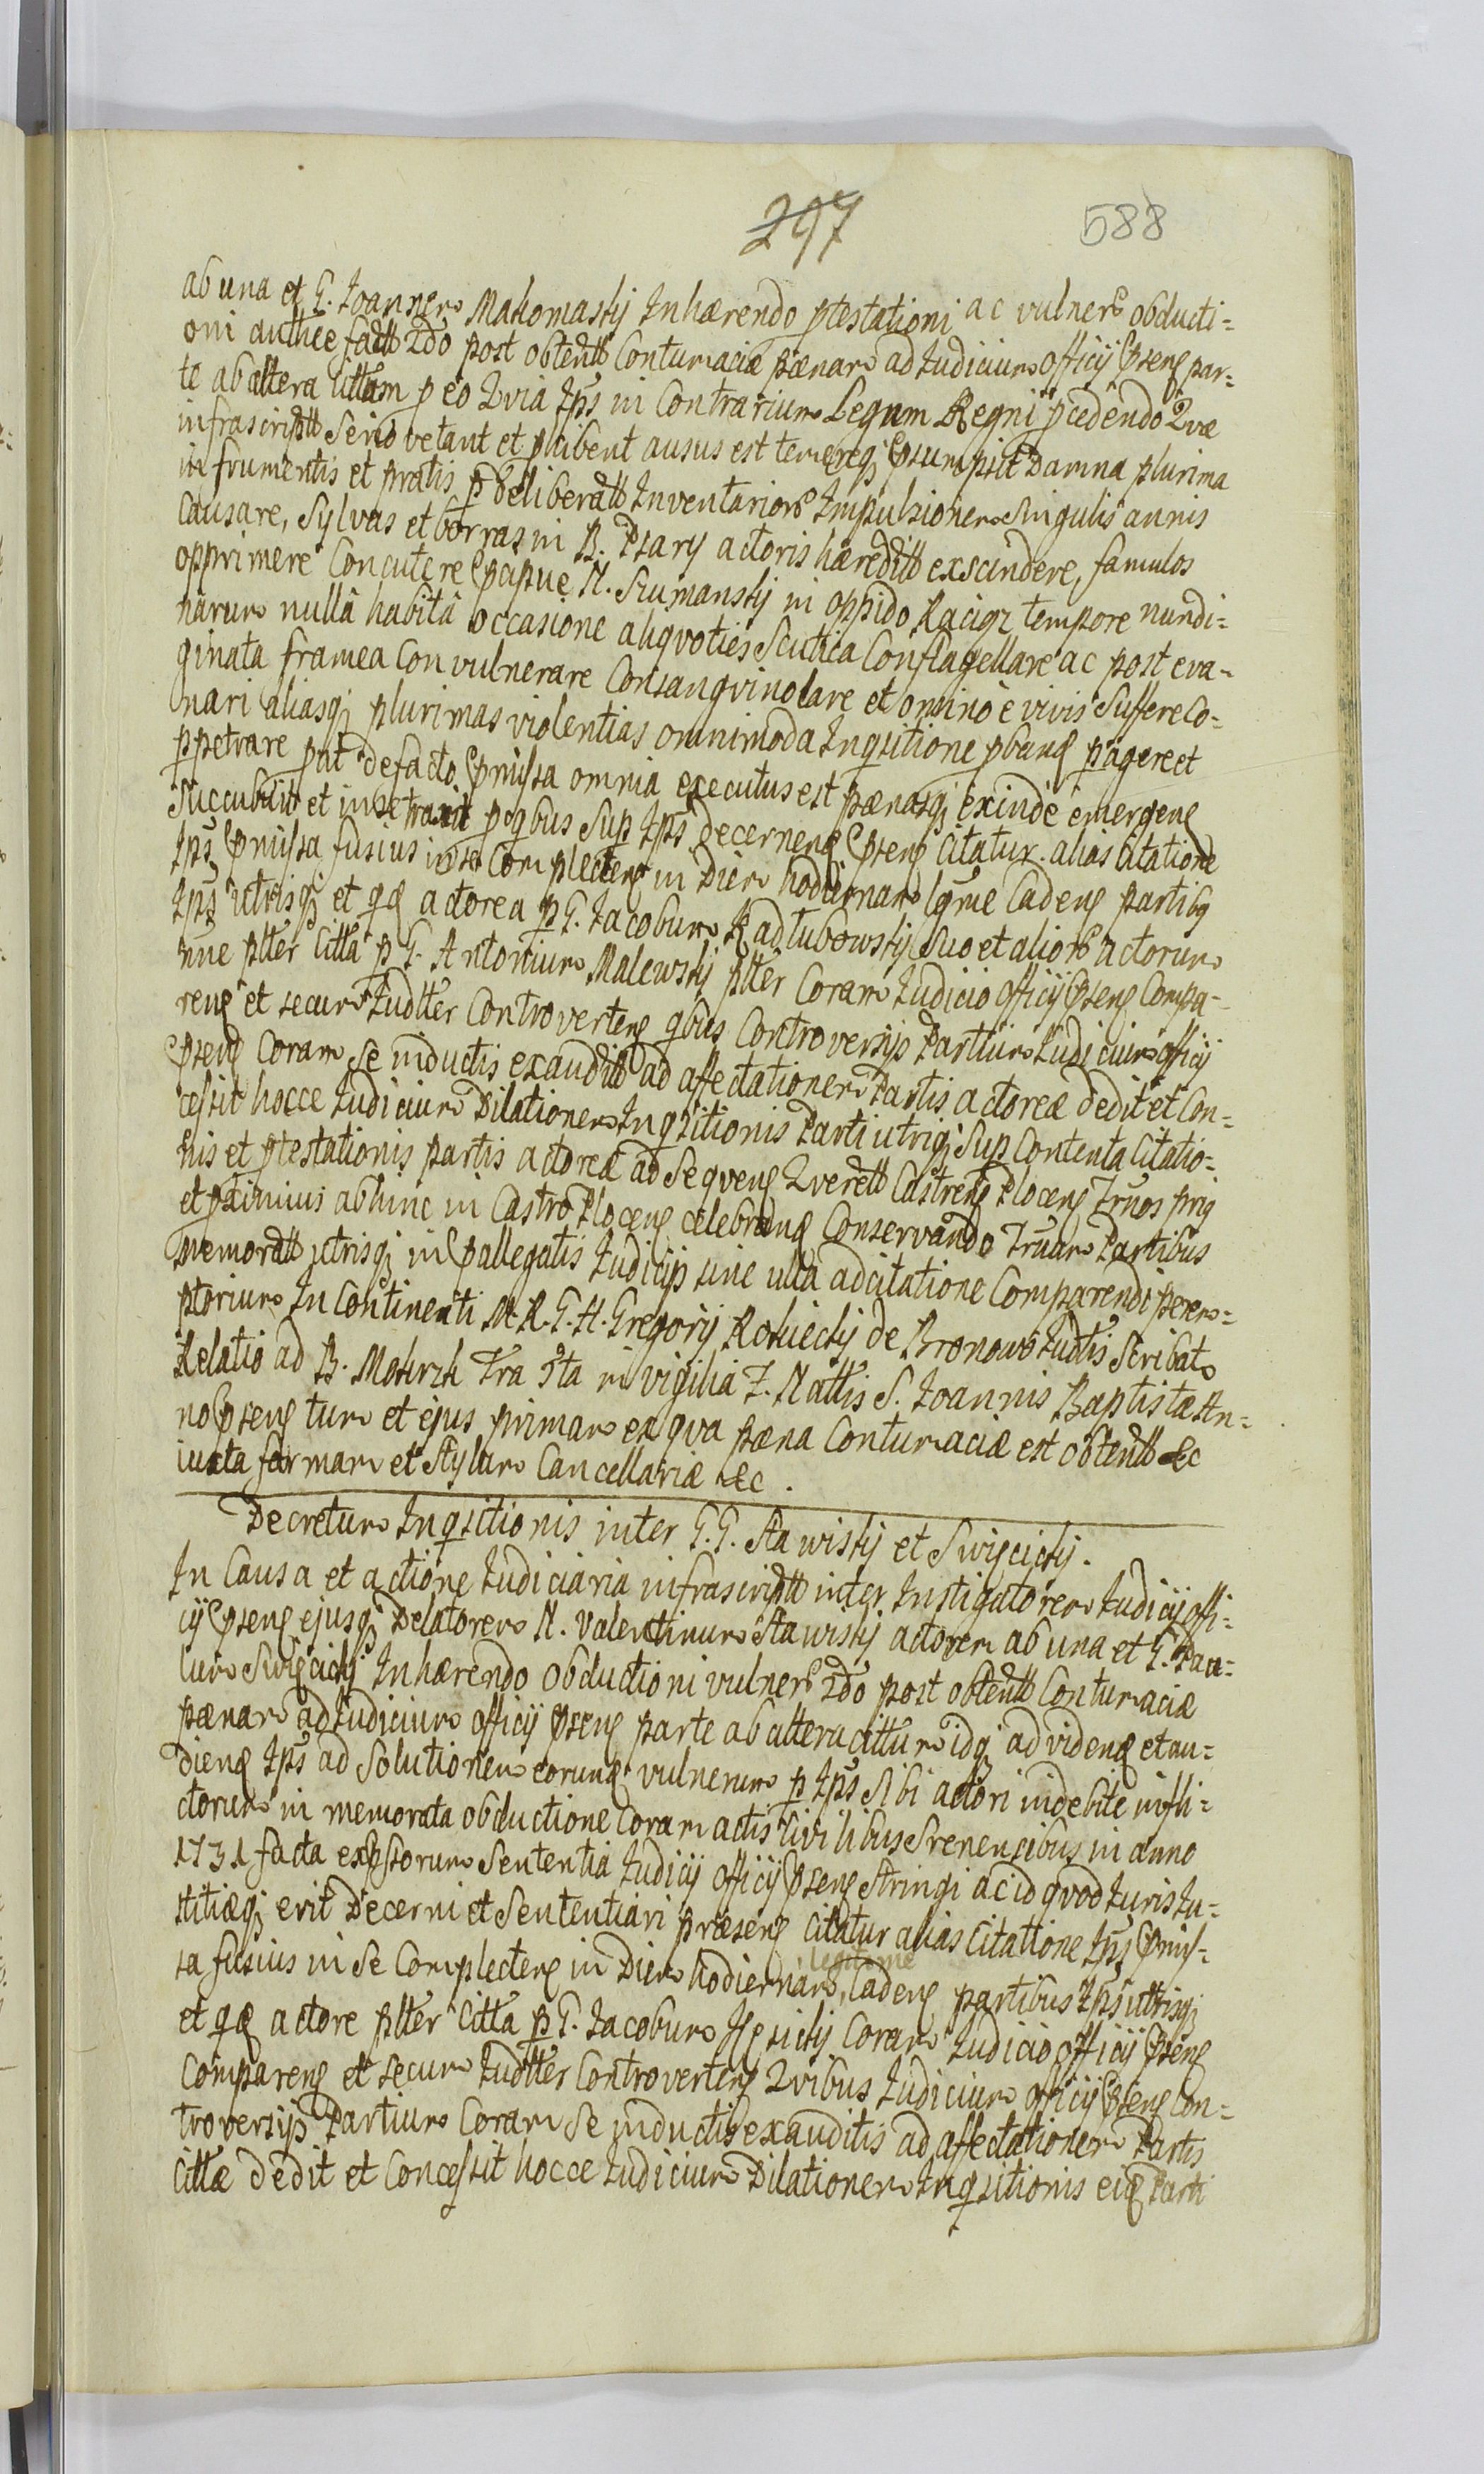 297 588
ab una et G. Joannem Makomaskij Inhærendo ptestationi ac vulner obducti=
oni authce factt 2do post obtentt Contumaciæ pænam ad Judicium Officij Psens par=
te ab altera Cittam p eo Qvia Ips in Contrarium Legum Regni pcedendo Qvæ
infrascriptt Serio vetant et phibent ausus est temereqz Psumpsit Damna plurima
in frumentis et pratis p deliberatt Inventarior Impulsionem Singulis annis
Causare, Sylvas et borras in B. Psary actoris hæreditt exscindere, famulos
opprimere Concutere Pcipue N. Szumanskij in oppido Raciąz tempore nundi=
narum nullâ habitâ occasione aliqvoties Scutica Conflagellare ac post eva=
ginata framea Convulnerare Consangvinolare et omnino è vivis Suffere Co=
nari aliasqz plurimas violentias omnimoda Inqsitione pband pagere et
ppetrare put de facto Pmissa omnia executus est pænasqz exinde emergens
Succubuit et in se traxit p qbus Sup Ips decernend Psens Citatur. alias Citatione
Ips Pmissa fusius in se Complectens in Diem hodiernam lgme Cadens partibq
Ips utrisqz et qd actorea p G. Jacobum Kadłubowskij Suo et alior actorum
nne plter Citta p G. Antonium Malewskij plter Coram Judicio Officij Psens Compa=
rens et secum Judlter Controvertens qbus Controversijs Partium Judicium Officij
Psens Coram Se inductis exauditt ad affectationem Partis actoreæ dedit et Con=
cessit hocce Judicium Dilationem Inqsitionis Parti utriqz Sup Contenta Citatio=
nis et ptestationis partis actoreæ ad Seqvens Qverett Castrens Plocens Trnos priq
et pximius abhinc in Castro Plocens celebrand Conservando Trnum Partibus
memoratt utrisqz in Pallegatis Judicijs sine ulla adcitatione Comparendi perem=
ptorium In Continenti M. R. G. H. Gregorij Rokickij de Bronowo Judtis Scribat
Relatio ad B. Mokrzk Fra 5ta in vigilia F. Nattis S. Joannis Baptistæ An=
no Psens tum et ejus primam ex qva pæna Contumaciæ est obtentt &c
iuxta formam et Stylum Cancellariæ &c.
Decretum Inqsitionis inter G. G. Stawiskij et Swięcickij.
In Causa et actione Judiciaria infrascriptt inter Instigatorem Judicij offi=
cij Psens ejusqz Delatorem N. Valentinum Stawiskij actorem ab una et G. Pau=
lum Swięcickij Inhærendo Obductioni vulner 2do post obtentt Contumaciæ
pænam ad Judicium Officij Psens parte ab altera cittum idqz ad videnq et au=
dienq Ips ad Solutionem eorunq vulnerum p Ips Sibi actori indebite infli=
ctorum in memorata obductione Coram actis Civilibus Srenensibus in anno
1731 facta expssorum Sententiâ Judicij Officij Psens Stringi ac id qvod Juris Ju=
stitiæqz erit Decerni et Sententiari præsens Citatur alias Citatione Ips Pmis=
sa fusius in Se Complectens in Diem hodiernam, legitime Cadens partibus Ips utrisqz
et qd actore plter Citta p G. Jacobum Coram Judicio Officij Psens
Comparens et secum Judlter Controvertens Qvibus Judicium Officij Psens Con=
troversijs Partium Coram Se inductis exauditis ad affectationem Partis
Cittæ dedit et Concessit hocce Judicium Dilationem Inqsitionis eiq Parti